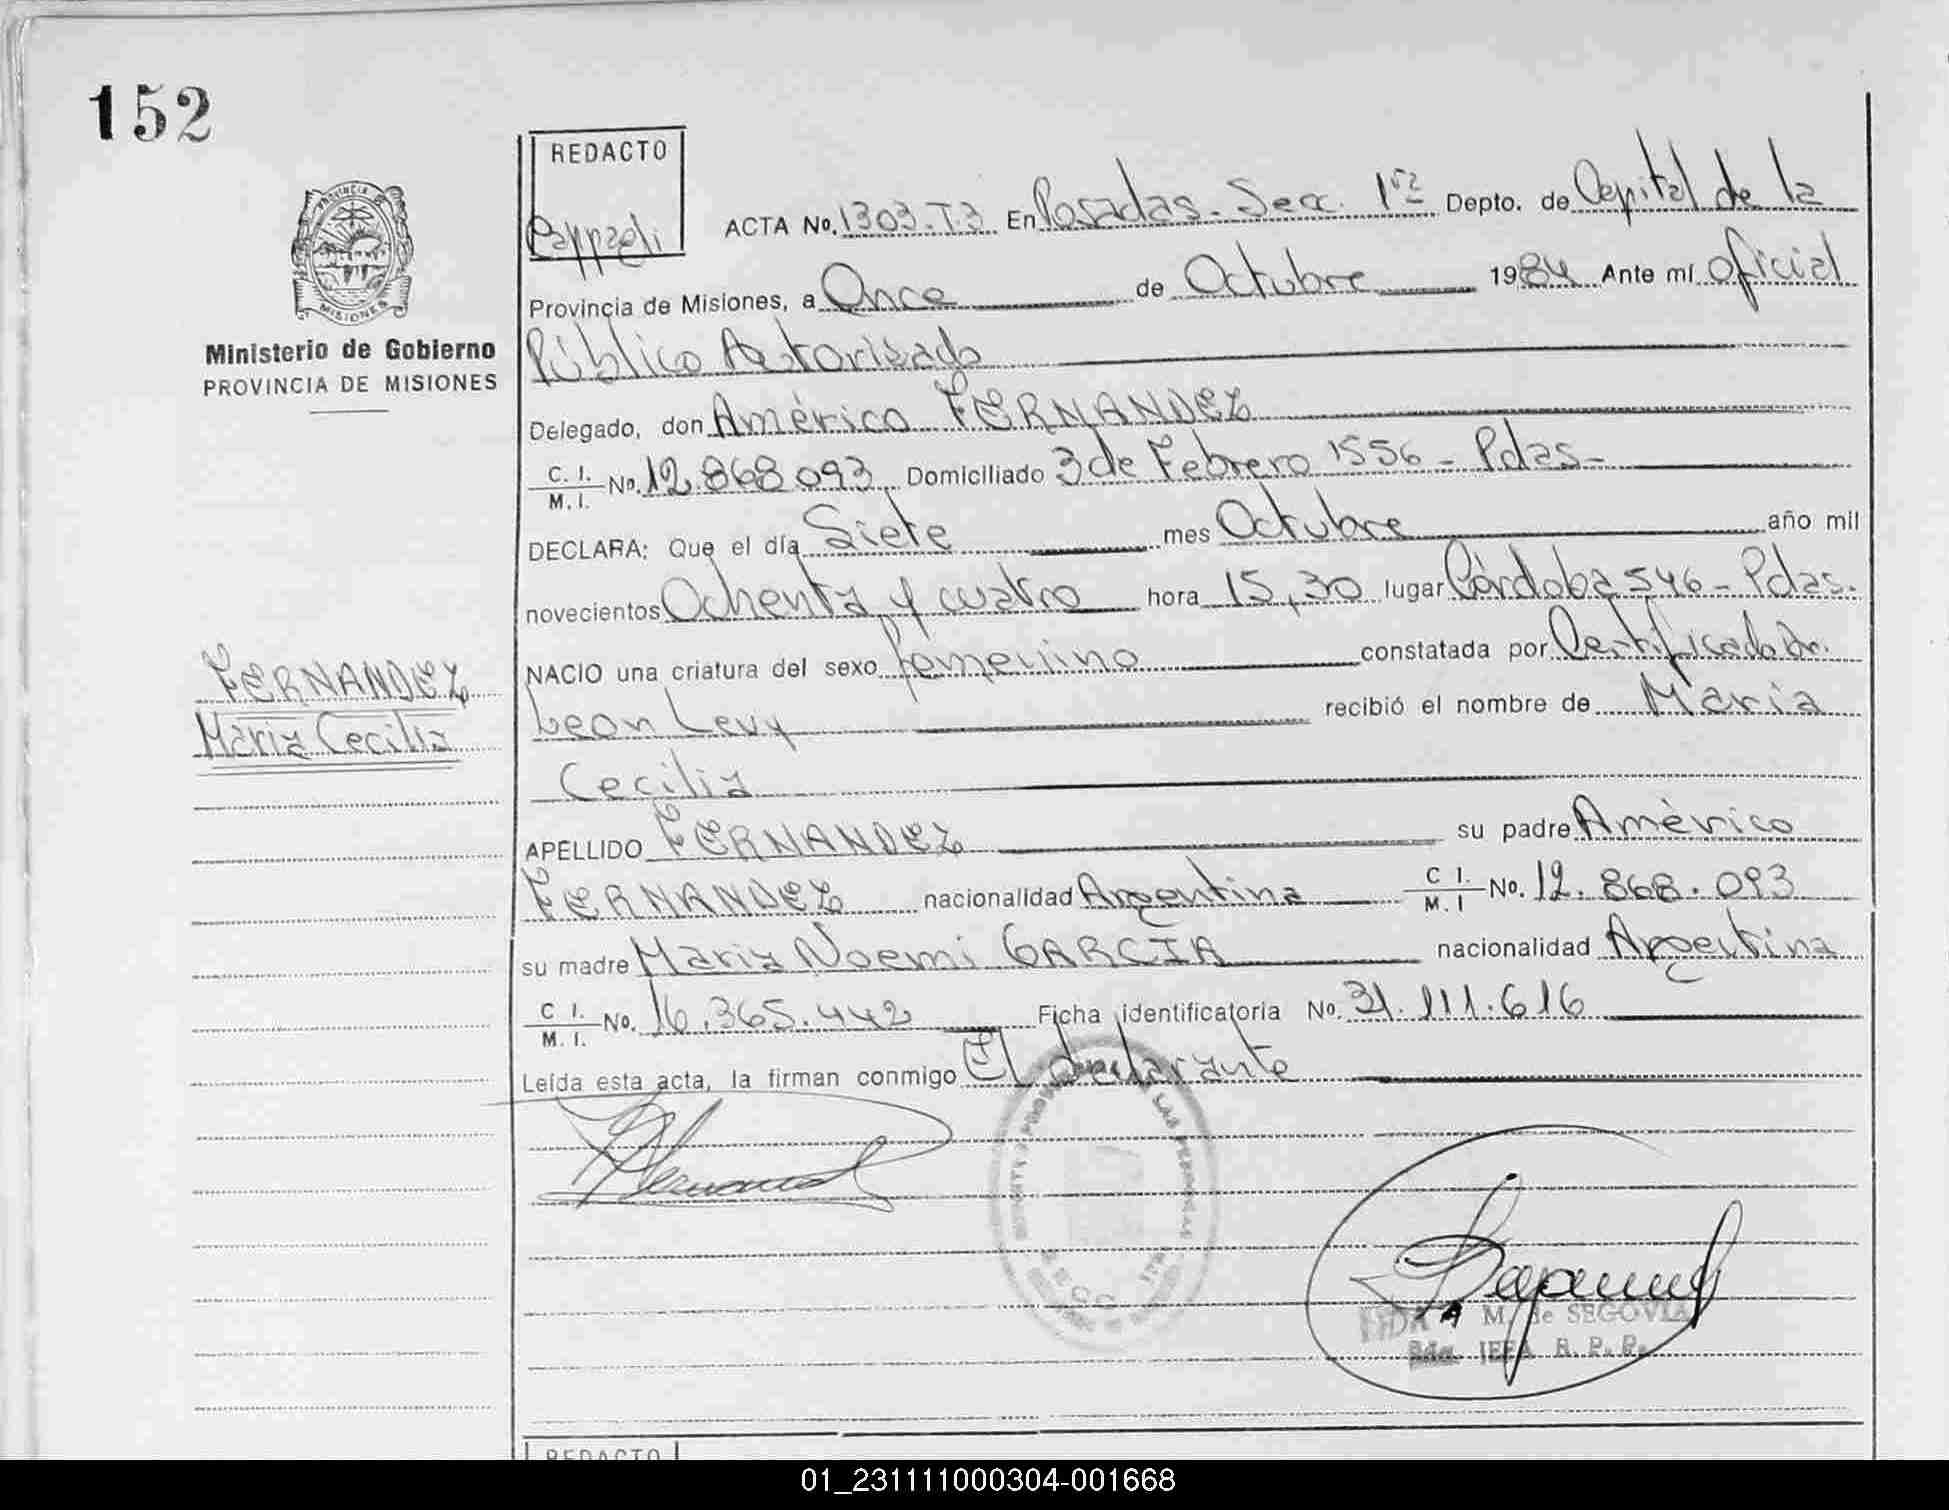 152
REDACTO
Cappaeli
ACTA No. 1303.T3 En Posadas. Secc. 1ra Depto. de Capital de la
Provincia de Misiones, a Once de Octubre 1984 Ante mí Oficial
Público Autorizado
Delegado, don Américo FERNANDEZ
C. I. M. I. No. 12.868.093 Domiciliado 3 de Febrero 1556 - Pdas -
DECLARA: Que el día Siete mes Octubre año mil
novecientos Ochenta y cuatro hora 15,30 lugar Córdoba 546 - Pdas.
NACIO una criatura del sexo femenino constatada por Certificado Dr.
Leon Levy recibió el nombre de María
Cecilia
APELLIDO FERNANDEZ su padre Américo
FERNANDEZ nacionalidad Argentina C I. M. I No. 12.868.093
su madre Maria Noemi GARCIA nacionalidad Argentina
C I. M. I. No. 16.365.442 Ficha identificatoria No. 31.111.616
Leída esta acta, la firman conmigo El declarante
PROVINCIA
MISIONES
Ministerio de Gobierno
PROVINCIA DE MISIONES
FERNANDEZ
Maria Cecilia
LAS PERSONAS
A M. de SEGOVIA
2da. JEFA R. P. P.
REDACTO
01_231111000304-001668